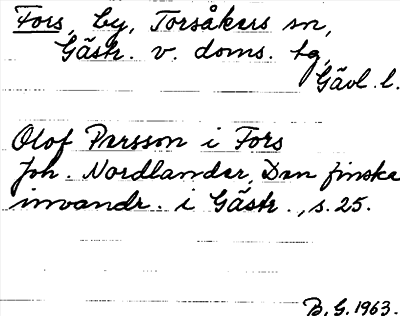 Fors, by, Torsåkers sn,
Gästr. v. doms. tg,
Gävl. l.
Olof Persson i Fors
Joh. Nordlander, Den finska
invandr. i Gästr., s. 25.
B. G. 1963.